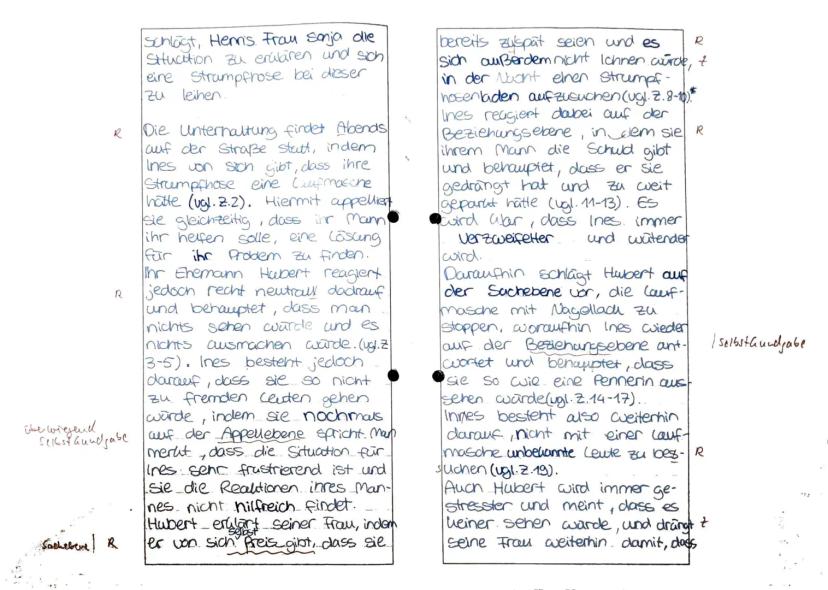 schlägt, Henris Frau Sonja die
Situation zu erklären und sich
eine Strumpfhose bei dieser
zu leihen.
R
Die Unterhaltung findet Abends
auf der Straße statt, indem
Ines von sich gibt, dass ihre
Strumpfhose eine Laufmasche
hätte (vgl. Z.2). Hiermit appelliert
sie gleichzeitig, dass ihr Mann
ihr helfen solle, eine Lösung
für ihr Problem zu finden.
Ihr Ehemann Hubert reagiert
R
jedoch recht neutrall dadrauf
und behauptet, dass man
nichts sehen würde und es
nichts ausmachen würde. (vgl. Z
3-5). Ines besteht jedoch
darauf, dass sie so nicht
zu fremden Leuten gehen
würde, indem sie nochmals
überwiegend
Selbstkundgabe
auf der Appellebene spricht. Man
merkt, dass die Situation für
Ines sehr frustrierend ist und
sie die Reaktionen ihres Man-
nes nicht hilfreich findet.
Hubert erklärt seiner Frau, indem
Sachebene/ R
er von sich selbst Preis gibt, dass sie
bereits zu spät seien und es
R
sich außerdem nicht lohnen würde,
Z
in der Nacht einen Strumpf-
hosenladen aufzusuchen (vgl. Z. 8-10)*
Ines reagiert dabei auf der
Beziehungsebene, in dem sie
R
ihrem Mann die Schuld gibt
und behauptet, dass er sie
gedrängt hat und zu weit
geparkt hätte (vgl. 11-13). Es
wird klar, dass Ines immer
verzweifelter und wütender
wird.
Daraufhin schlägt Hubert auf
der Sachebene vor, die Lauf-
masche mit Nagellack zu
stoppen, woraufhin Ines wieder
auf der Beziehungsebene ant-
/Selbstkundgabe
wortet und behauptet, dass
sie so wie eine Pennerin aus-
sehen würde (vgl. Z. 14-17).
Innes besteht also weiterhin
darauf, nicht mit einer Lauf-
masche unbekannte Leute zu bez-
R
suchen (vgl. Z. 19).
Auch Hubert wird immer ge-
stresster und meint, dass es
keiner sehen würde, und drängt
Z
seine Frau weiterhin damit, dass